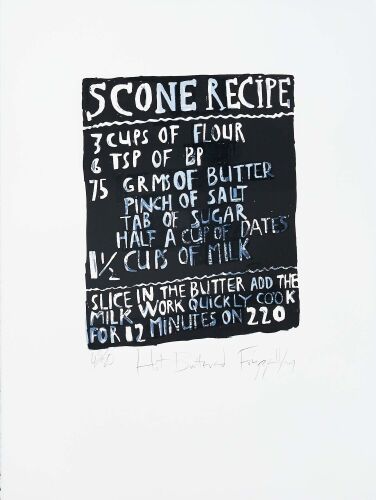 SCONE RECIPE
3 CUPS OF FLOUR
6 TSP OF BP
75 GRMS OF BUTTER
PINCH OF SALT
TAB OF SUGAR
HALF A CUP OF DATES
1 1/2 CUPS OF MILK
SLICE IN THE BUTTER ADD THE
MILK WORK QUICKLY COOK
FOR 12 MINUTES ON 220
Hot Buttered